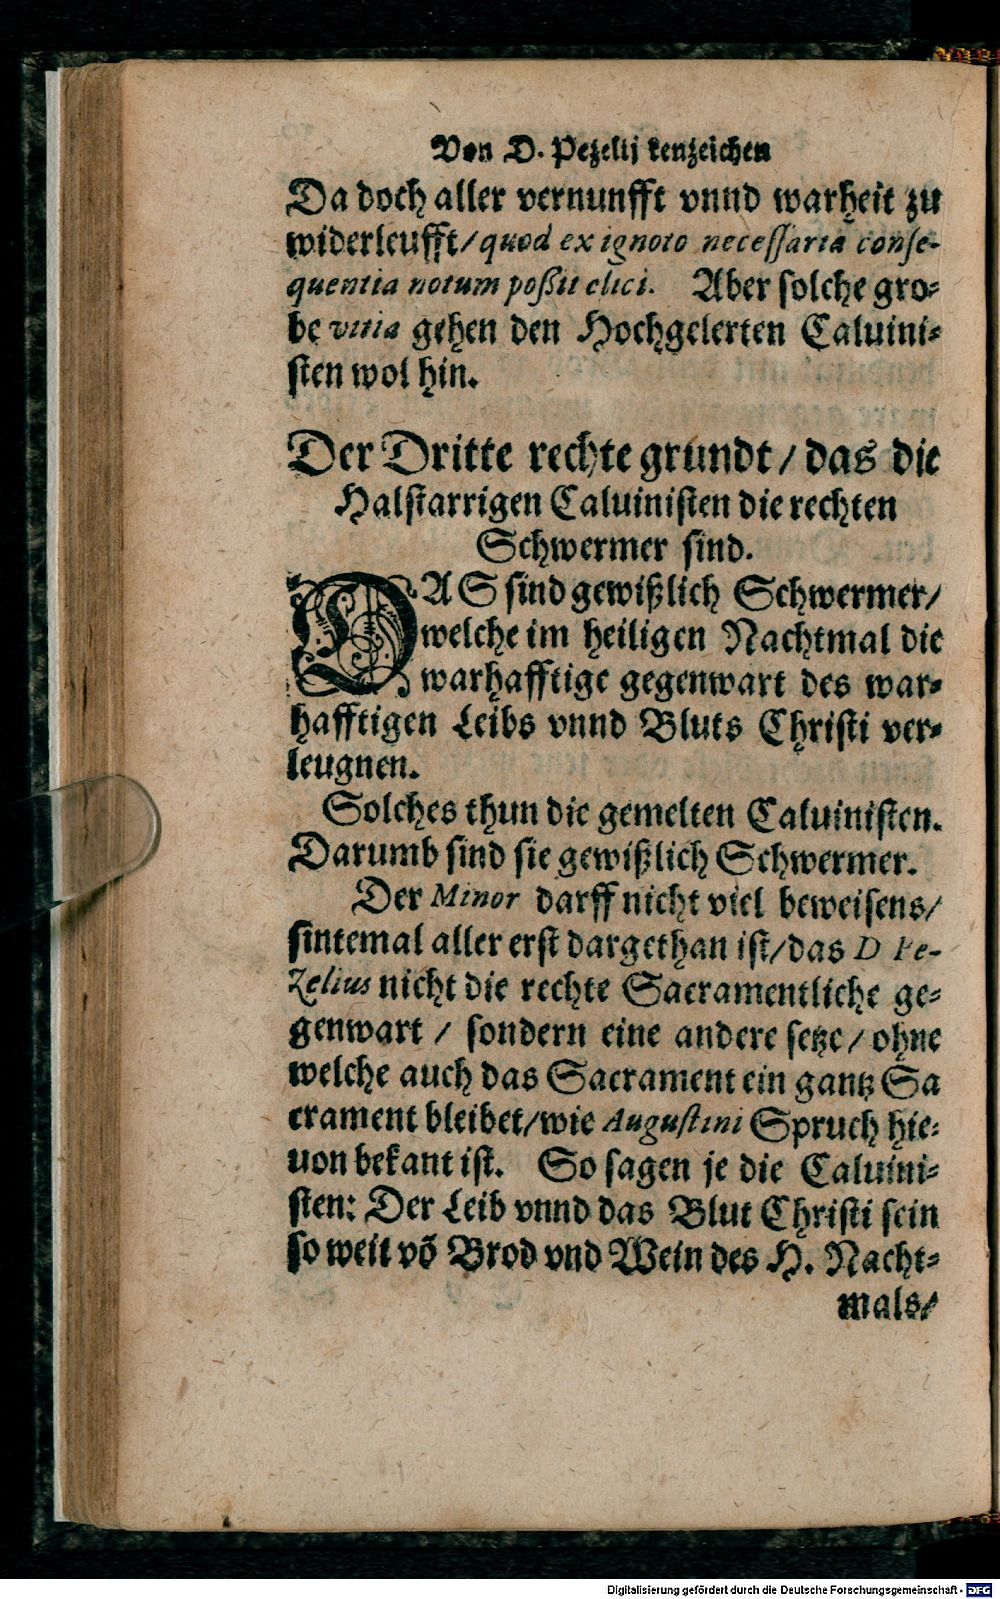 Von D. Pezelij kenzeichen
Da doch aller vernunfft vnnd warheit zu
widerleufft/ quod ex ignoto necessaria conse-
quentia notum poßit elici. Aber solche gro-
be vitia gehen den Hochgelerten Caluini-
sten wol hin.
Der Dritte rechte grundt/ das die
Halstarrigen Caluinisten die rechten
Schwermer sind.
DAS sind gewißlich Schwermer/
welche im heiligen Nachtmal die
warhafftige gegenwart des war-
hafftigen Leibs vnnd Bluts Christi ver-
leugnen.
Solches thun die gemelten Caluinisten.
Darumb sind sie gewißlich Schwermer.
Der Minor darff nicht viel beweisens/
sintemal aller erst dargethan ist/ das D Pe-
zelius nicht die rechte Sacramentliche ge-
genwart / sondern eine andere setze/ ohne
welche auch das Sacrament ein gantz Sa
crament bleibet/ wie Augustini Spruch hie-
uon bekant ist. So sagen je die Caluini-
sten: Der Leib vnnd das Blut Christi sein
so weit võ Brod vnd Wein des H. Nacht-
mals/
Digitalisierung gefördert durch die Deutsche Forschungsgemeinschaft - DFG